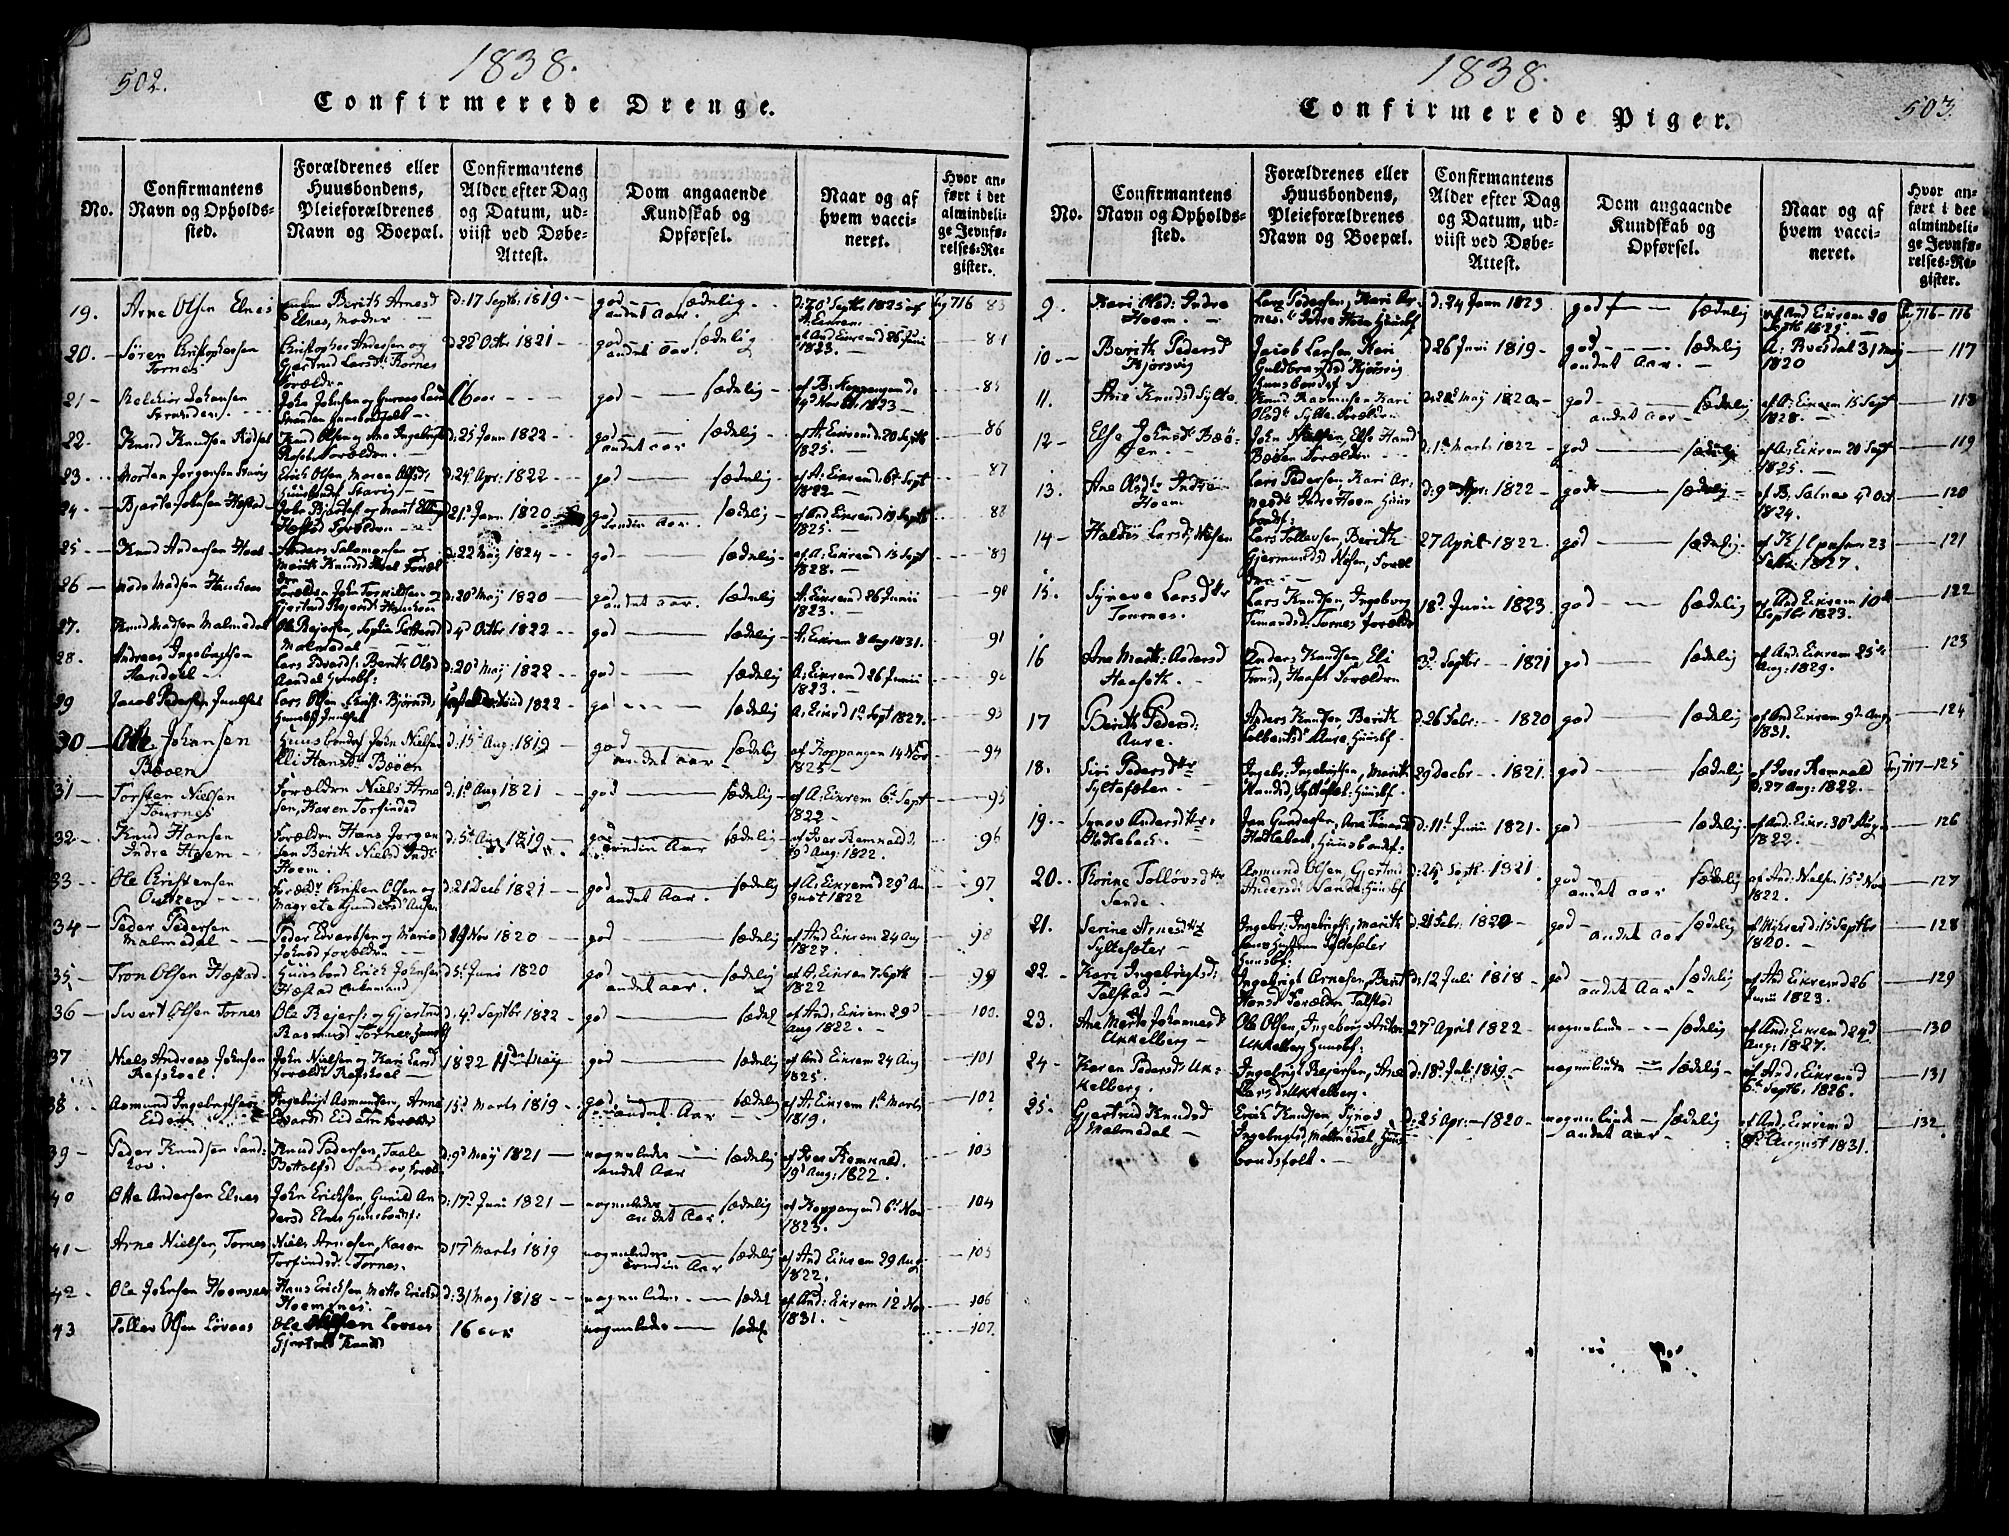 502.
1838.
Confirmerede Drenge.
No.
Confirmantens
Navn og Opholds-
sted.
Forældrenes eller
Huusbondens,
Pleieforældrenes
Navn og Boepæl.
Confirmantens
Alder efter Dag
og Datum, ud-
viist ved Døbe-
Attest.
Dom angaaende
Kundskab og
Opførsel.
Naar og af
hvem vacci-
neret.
Hvor an-
ført i det
almindeli-
ge Jevnfø-
relses-Re-
gister.
19. Arne Olsen Elnes
Berith Arnesd
Elnes, Moder
d: 17 Septbr 1819.
god — sædelig
andet Aar.
Septbr 1825 af
A: Eikrem
716 83
20. Søren Christophersen
Tornes
Christopher Andersen og
Gjertrud Larsd: Tornes
Forældre
d: 22d Octbr 1821
god — sædelig
andet Aar.
af And Eikrem d 26 Junii
1823.
84
21 Johansen
John Johnsen og
16 aar
god — sædelig
af B: Koppangen d:
4d Novbr 1823
85
22. Knud Knudsen Rødset
Knud Olsen og Ane Ingebrigtsd
Forældre
d: 25 Janr 1822
god — sædelig
andet aar
af A: Eikrem d: 20 Septb
1825.
86
23. Morten Jørgensen Stavig
Erich Olsen, Maren Olsd:
Huusbond Stavig
d: 24d Apr: 1822
god — sædelig
af A: Eikrem d: 6d Sept
1822
87
24. Bjerte Johnsen Hostad
John Bjertesen og Marit
Hostad Forældre
21d Janr 1820
god — sædelig
af And Eikrem d 13 Septb
1825
88
25 Knud Andersen Hoel
Anders Salomonsen og
Marith Knudsd Hoel Foræl
dre
d: 22 May 1824
god — sædelig
af A: Eikrem d: 13 Sept
1828.
89
26 Mads Madsen Hauckaas
Forældre John Torkildsen og
Gjertrud Reiersd:
d: 20d May 1820
god — sædelig
andet Aar.
A: Eikrem d 26 Junii
1823.
90
27. Knud Madsen Malmedal
Ole Reiersen, Sophia Pettersd
Malmedal
d: 4d Octbr 1822
god — sædelig
A: Eikrem 8 Aug 1831.
91
28. Andreas Ingebrigtsen
Aandal
Lars Edvards: Berith Olsd
Aandal Huusbf:
d: 20d May 1822
god — sædelig
A: Eikrem d 26 Junii
1823.
92
29 Jacob Pedersen Juulset
Lars Olsen Bjørnsd:
Huusbf Juulset
1822
god — sædelig
A: Eikrem d 1d Sept 1827.
93
30 Ole Johansen
Bøoen
Huusbonds John Nielsen
Elli Hansdtr Bøoen
d: 15d Aug: 1819
god — sædelig
andet aar
af Koppangen 14 Nov
1825
94
31 Torsten Nielsen
Tournes
Forældre Niels Arne
sen, Karen Torfindsd
d: 1d Aug 1821
god — sædelig
af A: Eikrem 6d Sept
1822
95
32 Knud Hansen
Indre Hoem
Forældre Hans Jørgen
sen Berith Nielsd Indr:
Hoem.
d: 5d Aug 1819
god — sædelig
Aar
af Iver Remvald d
9d Aug: 1822.
96
33 Ole Christensen
Forældr Christen Olsen og
Magrete Gundersd
d: 21 Decb 1821
god — sædelig
andet Aar.
af A: Eikrem d 29d Au
gust 1822
97
34 Peder Pedersen
Malmedal
Peder Evertsen og Marie
Johnsd forældre
19 Nov 1820
god — sædelig
af And Eikrem 24 Aug
1827.
98
35 Tron Olsen Hæstad
Huusbond Erich Johnsen
Hæstad Enkemand
d: 5d Juni 1820
god — sædelig
andet aar.
af A: Eikrem 7 Septb
1822
99
36 Sivert Olsen Tornes
Ole Reiers: og Gjertrud
Rasmusd Tornes,
d: 4d Septbr 1822
god — sædel
af And: Eikrem 29d
Aug 1822.
100.
37 Niels Andreas Johnsen
Refskoel.
John Nielsen og Kari Larsd
Forældr Refskoel
1822 11te May
god — sædelig
af And Eikrem 24 Aug
1825.
101
38. Asmund Ingebrigtsen
Eidem
Ingebrigt Asmundsen, Arna
Edvardsd Eidem Forældr
15d Marts 1819
god — sædelig
andet Aar
af A: Eikrem 1d Marts
1819.
102
39 Peder Knudsen Sand-
hov.
Knud Pedersen, Taale
Bottolfsd
d: 9d May 1821
nogenledes — sædelig
andet Aar
af Iver Remvald.
9d Aug: 1822.
103
40 Ole Andersen Elnes
John Ericksen, Gunild An
dersd Elnes Huusbonds:
d: 17d Juni 1821
nogenledes — sædelig
andet Aar.
af Koppangen d 6d Nov
1823.
104
41 Arne Nielsen, Tornes
Niels Arnesen, Karen
Torfindsd: Tornes.
d 17d Marts 1819
nogenledes — sædelig
Aar
af And Eikrem 29 Aug
1822.
105
42. Ole Johnsen Hoemsnes
Hans Ericksen, Mette Ericksd
Hoemsnes.
d: 31 May 1818
nogenledes — sædel
af And: Eikrem 12 Nov
1831.
106
43 Tollev Olsen Løvaas
Ole Løvaas
Gjertrud Knudsd
16 aar
nogenledes — sædel
107.
1838.
503.
Confirmerede Piger.
No.
Confirmantens
Navn og Opholds-
sted.
Forældrenes eller
Huusbondens,
Pleieforældrenes
Navn og Boepæl.
Confirmantens
Alder efter Dag
og Datum, ud-
viist ved Døbe-
Attest.
Dom angaaende
Kundskab og
Opførsel.
Naar og af
hvem vacci-
neret.
Hvor an-
ført i det
almindeli-
ge Jevnfø-
relses-Re-
gister.
9. Kari Olsd: Indre
Hoem.
Lars Pedersen, Kari Ar-
nesd: Indre Hoem Huusbf
d: 24 Janr 1823
god — sædelig
af And Eikrem 20
Septb 1825.
716 — 116
10 Berith Pedersd
Kjørsvig
Jacob Larsen, Kari
Guldbrandsd Kjørsvig
Huusbondsf.
d: 26 Juni 1819
god — sædelig
andet Aar.
A: Buesdal 31 May
1820
117
11. Knudsd Sylte.
Knud Rasmusen Kari
Olsdtr Sylte Forældre
May 1820
god — sædelig
andet Aar
af A: Eikrem 15 Sept
1828.
118
12 Else Johnsd: Bøø-
gen.
John Nielsen, Else Hansd
Bøøen Forældre
d: 1d Marts 1822
god — sædelig
af A: Eikrem 20 Sept
1825.
119
13. Ane Olsdtr Indre
Hoem
Lars Pedersen Kari Ar-
nesdtr Indre Hoem Huus
bondf:
d: 9d Apr: 1822
god — sædelig
af B. Salnes 4d Oct
1824.
120
14 Haldis Larsd, Nesen
Lars Tollevsen, Berith
Gjermundsd Nesen, Foræl
dre
27 April 1822
god — sædelig
23
1827.
121
15. Synneve Larsdtr
Tornes.
Lars Knudsen, Ingeborg
Simonsd: Tornes Forældre
18d Junii 1823.
god — sædelig
af And Eikrem 10d
Septbr 1823.
122
16 Ane Marth: Andersd
Haaseth.
Anders Knudsen Eli
Tronsd, Haaset Forældre
3d Septbr 1821
god — sædelig
af And: Eikrem 25d
Aug: 1829.
123
17 Berith Pedersd:
Aure.
Anders Knudsen Berith
Aure, Huusbf
d: 26 Febr: 1820
god — sædelig
af And Eikrem 9d Aug
1831.
124
18. Siri Pedersdtr
Syltesæter.
Ingebr: Ingebrigtsen, Marith
d, Syltesæt: Huusbf.
29 Decbr 1821.
god — sædelig
af Iver Remvald
d: 27 Aug: 1822.
717 — 125
19. Synov Andersdtr.
Hatlebach.
Jan Gundersen, Ane Simonsd
Hatlebak, Huusbondsf:
d: 11d Junii 1821.
god — sædelig
af And: Eikr: 30d Aug
1822.
126
20. Karine Tollevsdtr
Sande.
Asmund Olsen, Gjertrud
Andersd: Sande Huusbf
d: 24d Septb: 1821.
god — sædelig
andet aar
af And: Nielsen 15d Nov
1822.
127
21. Serine Arnesdtr
Syltesæter
Ingebr: Ingebrigts:, Marith
Syltesæter
Huusbf:
d: 21 Febr: 1820
god — sædelig
andet aar
d: 15 Septbr
1820.
128
22. Kari Ingebrigtsd:
Talstad
Ingebrigt Arnesen, Berit
Hansd Forældre Talstad
d: 12 Juli 1818
god
andet Aar
af And Eikrem d 26
Junii 1823.
129
23. Ane Marta Johannesd
Ukkelberg
Ole Olsen, Ingeborg Anton
Ukkelberg Huusbf.
27d April 1822
nogenlunde — sædelig
af And: Eikrem d 24d
Aug: 1827.
130
24 Karen Pedersd: Uk-
kelberg.
Ingebrigt Reiersen, Ane
Larsd: Ukkelberg.
d: 18d Juli 1819
nogenlunde — sædelig
af And: Eikrem d
6d Septb. 1826.
131
25. Gjertrud Knudsd
Malmedal
Erich Knudsen, Synov
Ingebrigtsd, Malmedal, Huus
bondsfolk.
d: 25 Apr: 1820
nogenlunde — sædelig
andet aar
af And, Eikrem d
August 1831.
132